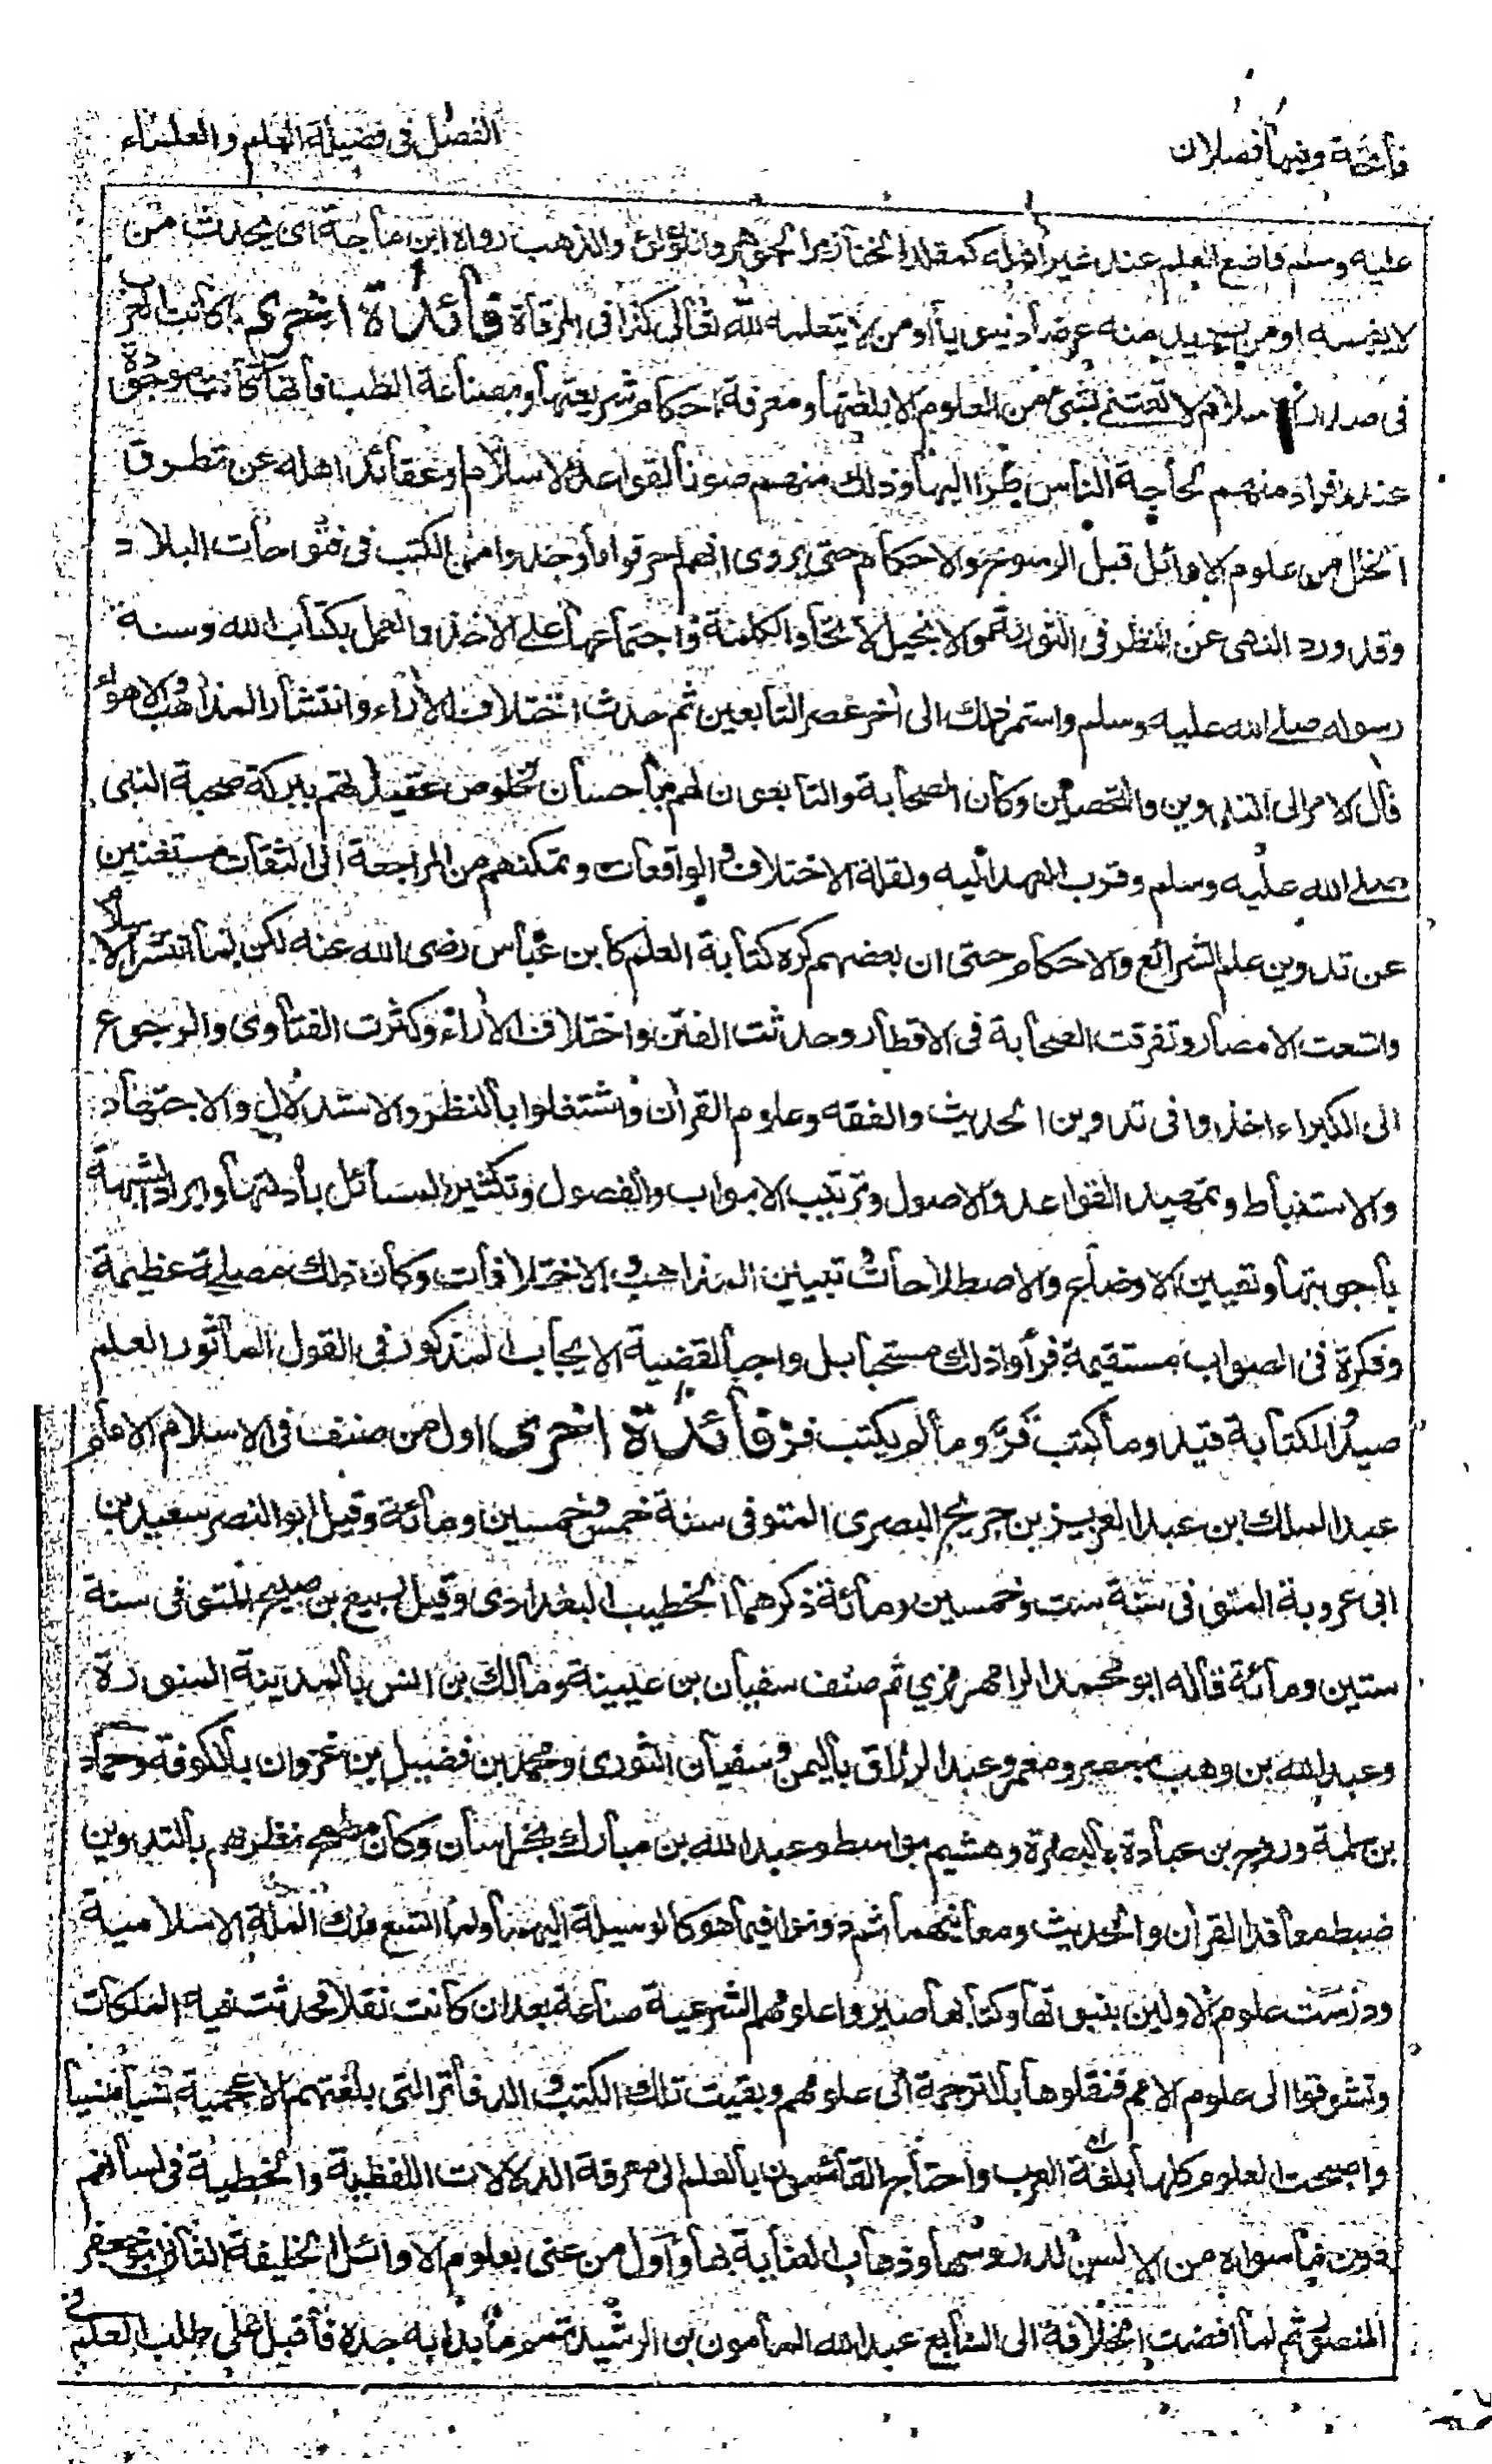 فاتحة وفيها فصلان
الفصل في فضيلة العلم والعلماء
عليه وسلم واضع العلم عند غير أهله كمقلد الخنازير الجوهر واللؤلؤ والذهب رواه ابن ماجة اى يحدث من
لا يفهمه او من يريد منه عرضا دنيويا أو من لا يتعلمه لله تعالى كذا فى المرقاة فائدة اخرى كانت العرب
فى صدر الاسلام لا تعتنى بشئ من العلوم الا بلغتها ومعرفة احكام شريعتها وبصناعة الطب فانها كانت موجودة
عند افراد منهم لحاجة الناس طرا اليها وذلك منهم صونا لقواعد الاسلام وعقائد اهله عن تطرق
الخلل من علوم الاوائل قبل الرسوخ والاحكام حتى يروى انهم احرقوا ما وجدوا من الكتب فى فتوحات البلاد
وقد ورد النهى عن النظر فى التوراة والانجيل لاتحاد الكلمة واجتماعها على الاخذ والعمل بكتاب الله وسنة
رسوله صلى الله عليه وسلم واستمر ذلك الى أخر عصر التابعين ثم حدث اختلاف الأراء وانتشار المذاهب والاهواء
فآل الامر الى التدوين والتحصين وكان الصحابة والتابعون لهم باحسان لخلوص عقيدتهم ببركة صحبة النبى
صلى الله عليه وسلم وقرب العهد اليه ولقلة الاختلاف والواقعات وتمكنهم من المراجعة الى الثقات مستغنين
عن تدوين علم الشرائع والاحكام حتى ان بعضهم كره كتابة العلم كابن عباس رضى الله عنه لكن لما انتشر الاسلام
واتسعت الامصار وتفرقت الصحابة فى الاقطار وحدثت الفتن واختلاف الأراء وكثرت الفتاوى والرجوع
الى الكبراء اخذوا فى تدوين الحديث والفقه وعلوم القرأن واشتغلوا بالنظر والاستدلال والاجتهاد
والاستنباط وتمهيد القواعد والاصول وترتيب الابواب والفصول وتكثير المسائل بأدلتها وايراد الشبهة
باجوبتها وتعيين الاوضاع والاصطلاحات وتبيين المذاهب والاختلافات وكان ذلك مصلحة عظيمة
وفكرة فى الصواب مستقيمة فرأوا ذلك مستحبا بل واجبا لقضية الايجاب المذكور فى القول المأثور العلم
صيد والكتابة قيد وما كتب قرّ وما لم يكتب فرّ فائدة اخرى اول من صنف فى الاسلام الامام
عبد الملك ابن عبد العزيز بن جريج البصرى المتوفى سنة خمس وخمسين ومائة وقيل ابو النصر سعيد بن
ابى عروبة المتوفى سنة ست وخمسين ومائة ذكرهما الخطيب البغدادى وقيل ربيع بن صبيح المتوفى سنة
ستين ومائة قاله ابو محمد الرامهرمزي ثم صنف سفيان بن عيينة ومالك بن انس بالمدينة المنورة
وعبد الله بن وهب بمصر ومعمر وعبد الرزاق باليمن وسفيان الثورى ومحمد بن فضيل بن غزوان بالكوفة وحماد
بن سلمة وروح بن عبادة بالبصرة وهشيم بواسط وعبد الله بن مبارك بخراسان وكان مطمح نظرهم بالتدوين
ضبط معاقد القرأن والحديث ومعانيهما ثم دونوا فيما هو كالوسيلة اليهما ولما اتسع ملك الملة الاسلامية
ودرست علوم الاولين بنبوتها وكتابها صيروا علومهم الشرعية صناعة بعد ان كانت نقلا فحدثت فيها الملكات
وتشوقوا الى علوم الامم فنقلوها بالترجمة الى علومهم وبقيت تلك الكتب والدفاتر التى بلغتهم الاعجمية نسيا منسيا
واصبحت العلوم كلها بلغة العرب واحتاج القائمون بالعلم الى معرفة الدلالات اللفظية والخطية فى لسانهم
دون ما سواه من الالسن لدروسها وذهاب العناية بها واول من عنى بعلوم الاوائل الخليفة الثانى ابو جعفر
المنصور ثم لما افضت الخلافة الى السابع عبد الله المامون بن الرشيد تمم ما بدا به جده فاقبل على طلب العلم فى